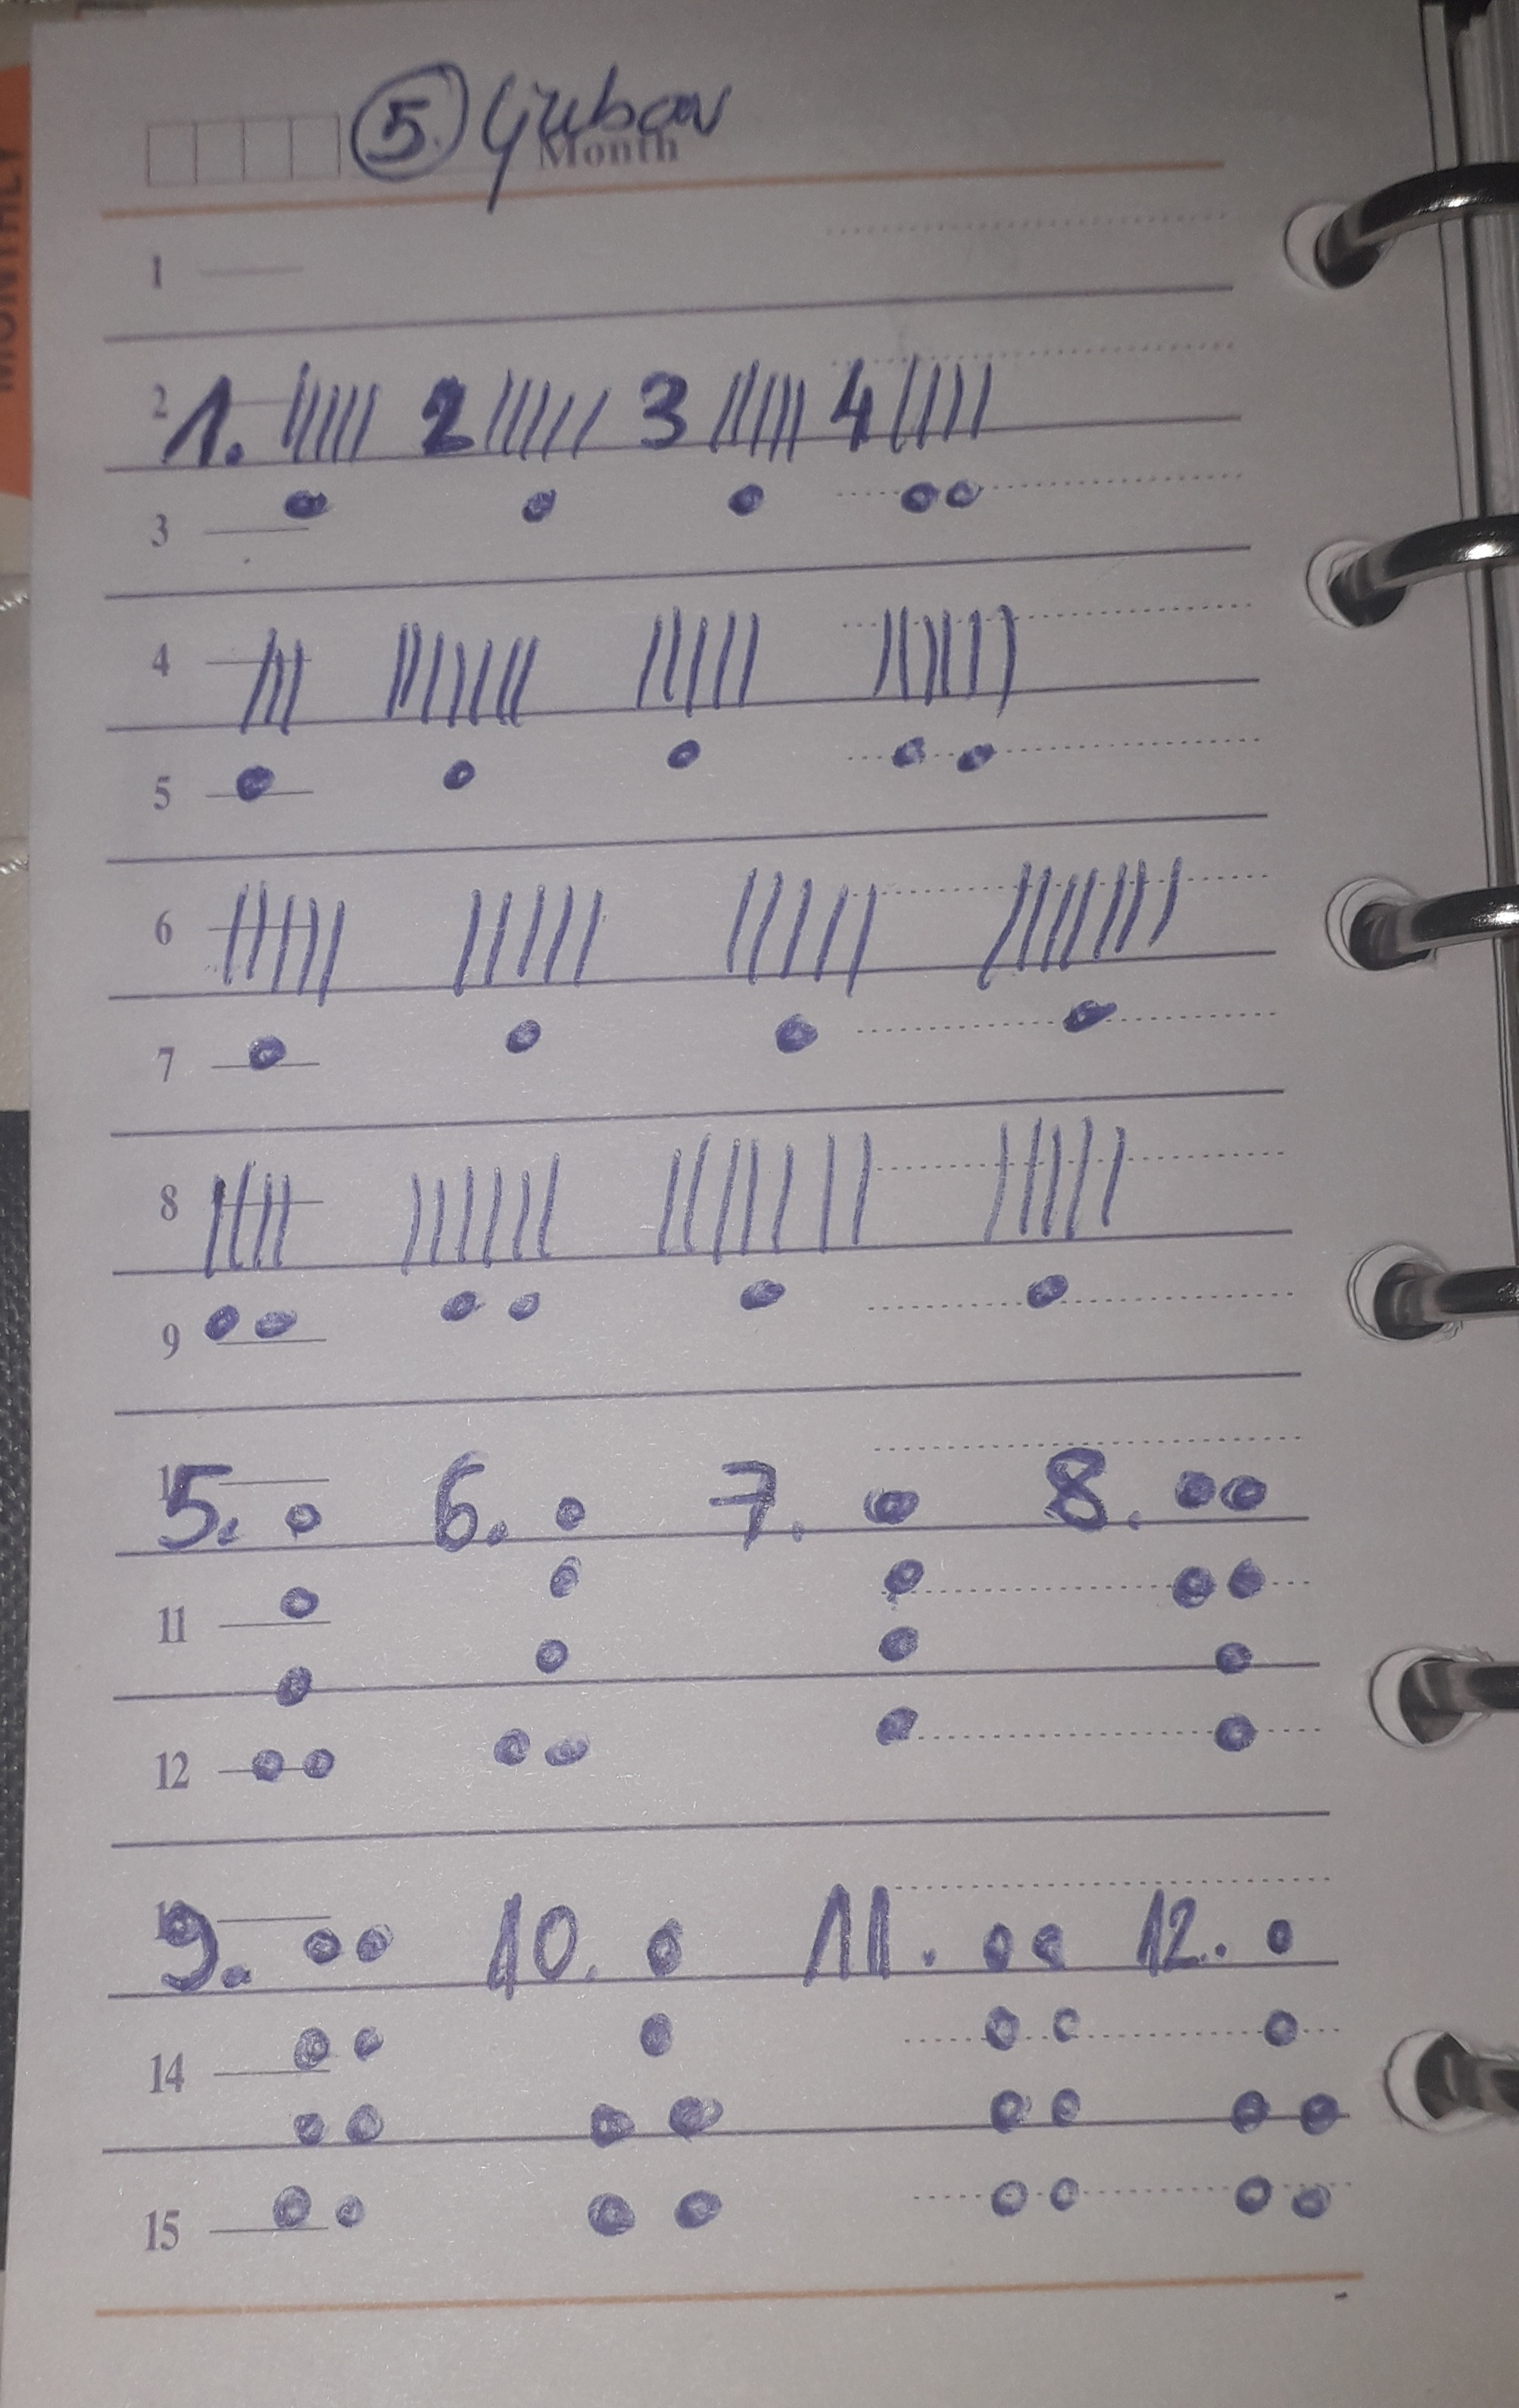 MONTHLY
5. Ljubav
Month
1
2
1. 2 3 4
3
4
5
6
7
8
9
5. 6. 7. 8.
11
12
9. 10. 11. 12.
14
15